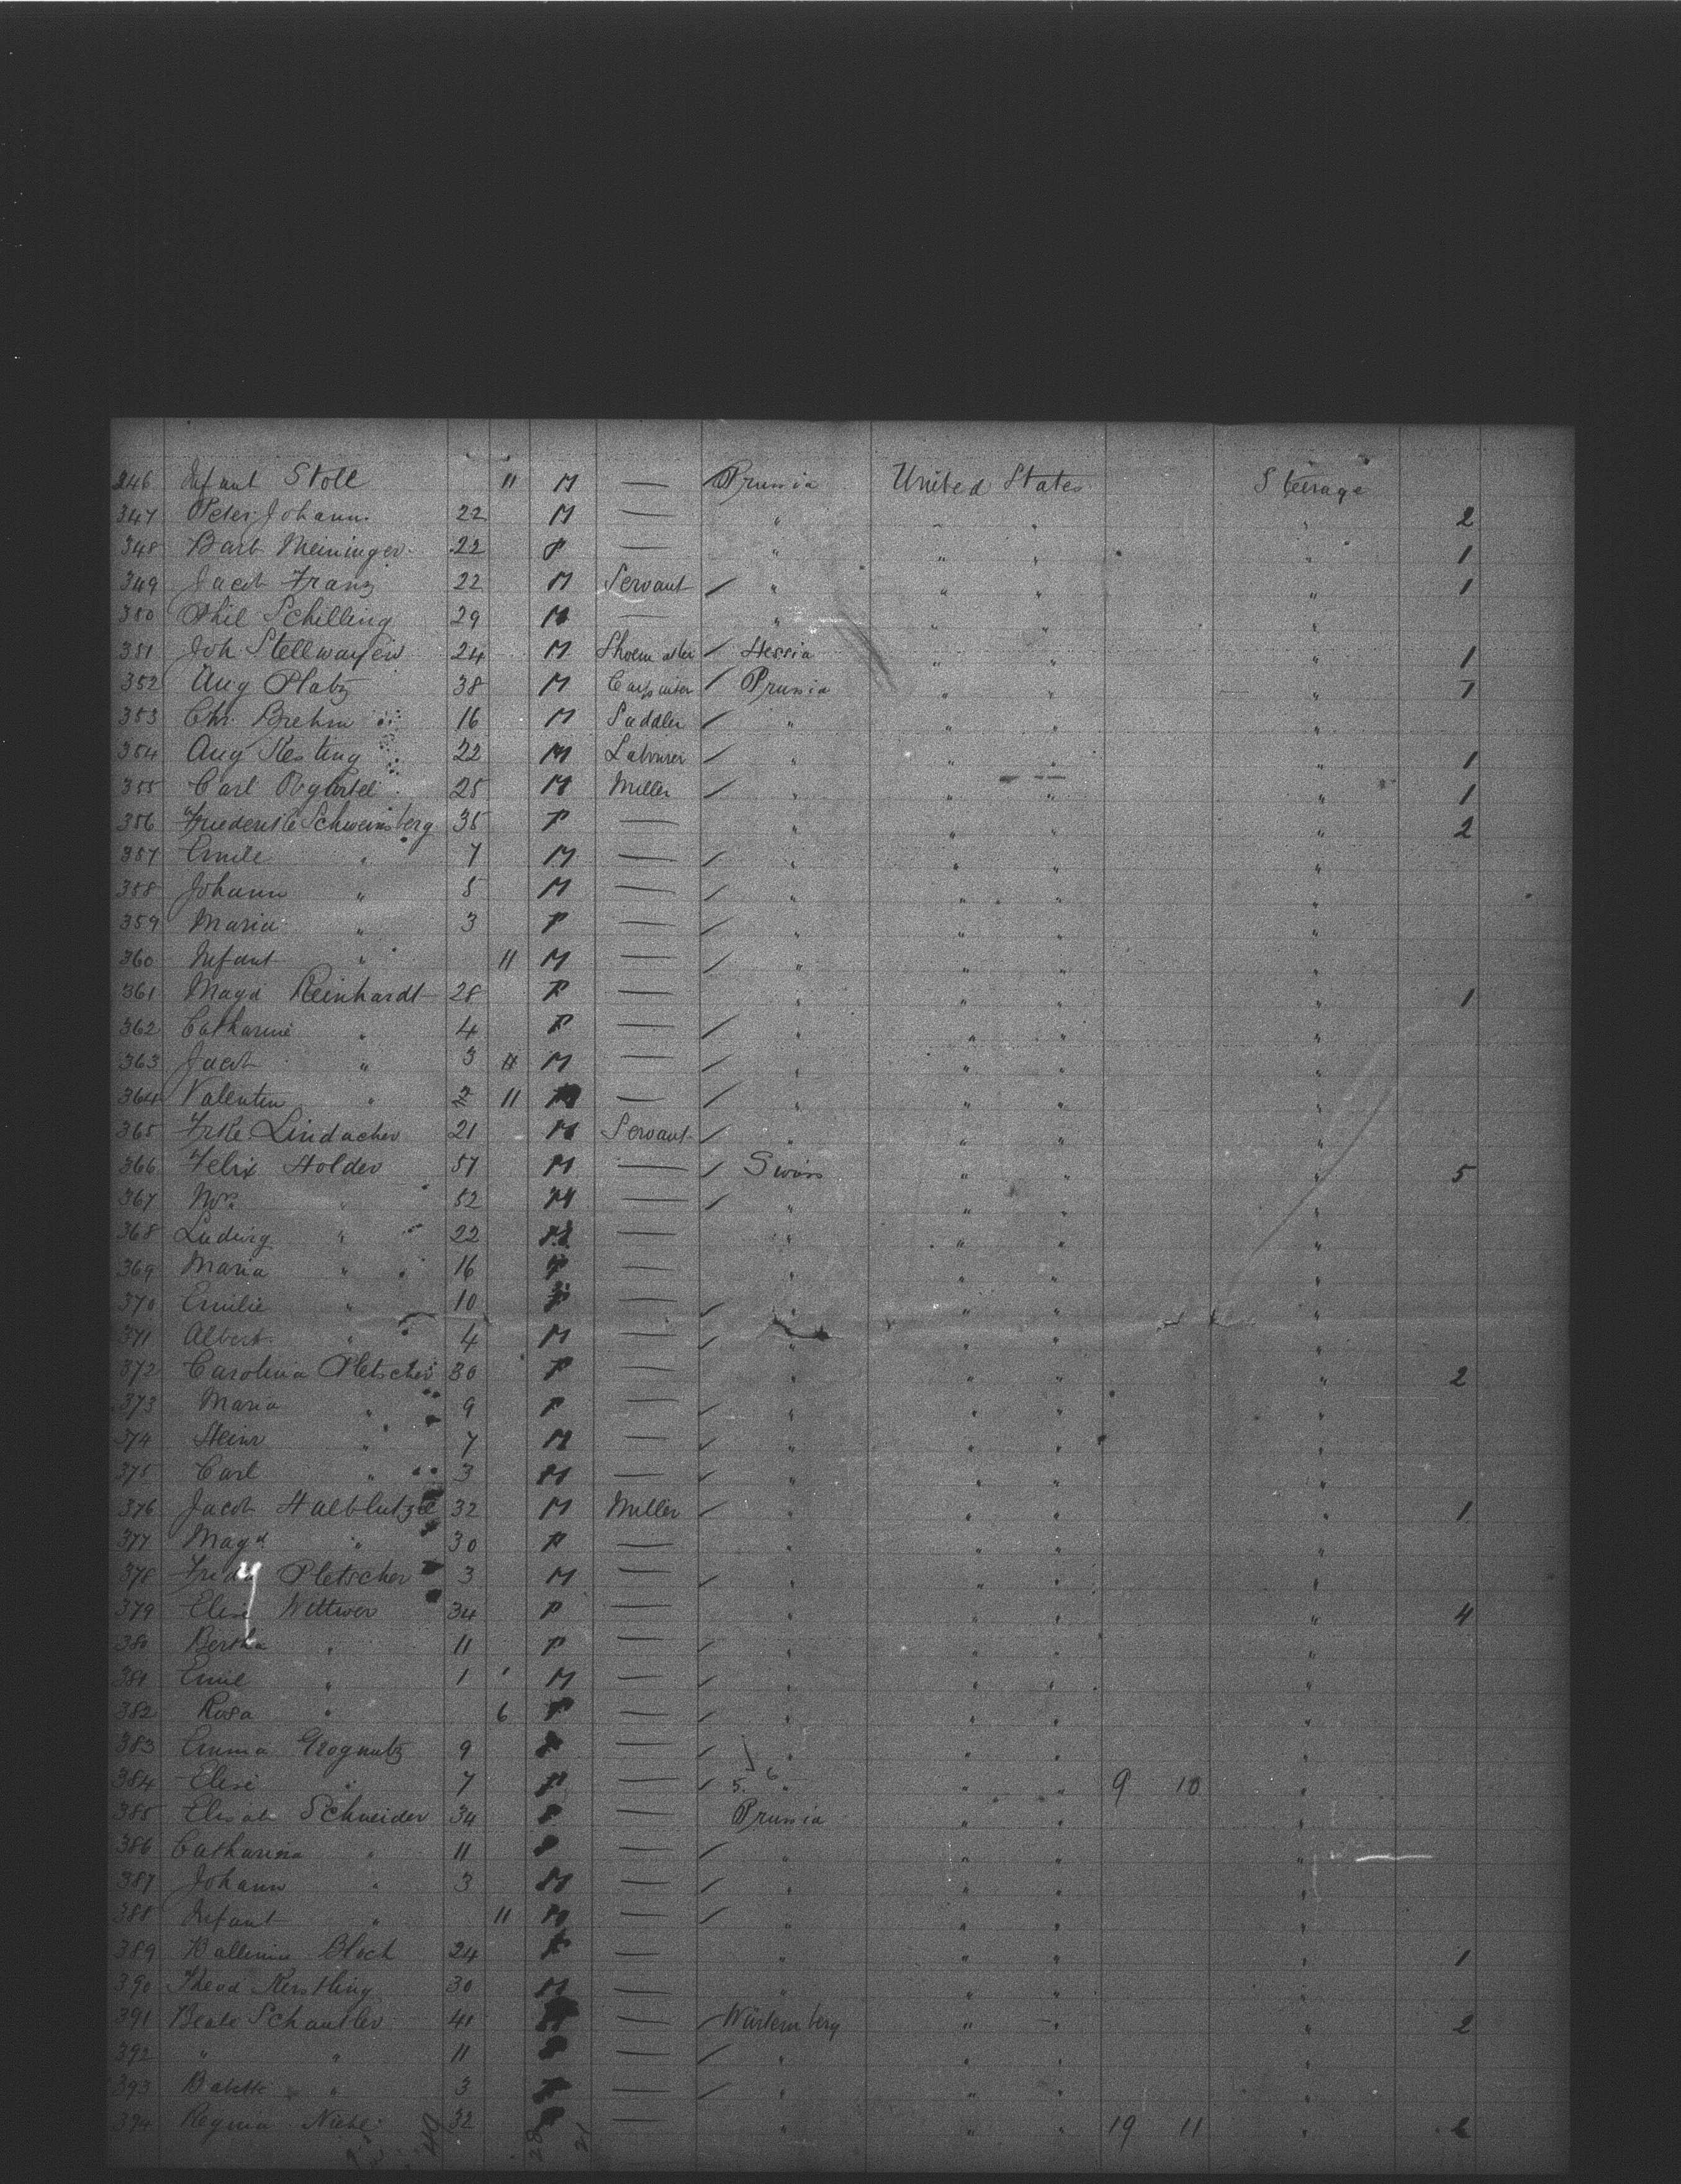 246 Infant Stoll 11 M — Prussia United States Steerage
347 Peter Johann 22 M — " " " " 2
348 Barb Meininger 22 F — " " " " 1
349 Jacob Franz 22 M Servant " " " " 1
350 Phil Schilling 29 M — " " " "
351 Joh Stellwagen 24 M Shoemaker Hessia " " " 1
352 Aug Platz 38 M Carpenter Prussia " " " 1
353 Chr. Brehm 16 M Saddler " " " "
354 Aug Kesting 22 M Labourer " " " " 1
355 Carl 25 M Miller " " " " 1
356 Friederike Schweinsberg 35 F — " " " " 2
357 Emile " 7 M — " " " "
358 Johann " 5 M — " " " "
359 Maria " 3 F — " " " "
360 Infant " 11 M — " " " "
361 Magd Reinhardt 28 F — " " " " 1
362 Catharine " 4 F — " " " "
363 Jacob " 3 M — " " " "
364 Valentin " 11 — " " " "
365 Frke Lindacher 21 M Servant " " " "
366 Felix Holder 57 M — Swiss " " " 5
367 " 52 — " " " "
368 Ludwig " 22 M — " " " "
369 Maria " 16 F — " " " "
370 Emilie " 10 F — " " " "
371 Albert " 4 M — " " " "
372 Carolina Pletscher 30 F — " " " " 2
373 Maria " 9 F — " " " "
374 Heinr " 7 M — " " " "
375 Carl " 3 M — " " " "
376 Jacob Halblutzel 32 M Miller " " " " 1
377 Magd " 30 F — " " " "
378 Pletscher 3 M — " " " "
379 Elise Wittwer 34 F — " " " " 4
380 Bertha " 11 F — " " " "
381 Emil " 1 M — " " " "
382 Rosa " 6 F — " " " "
383 Emma Grognutz 9 F — " " " "
384 Elise " 7 F — 5 6 " " " 9 10 "
385 Elisab Schneider 34 F — Prussia " " "
386 Catharina " 11 F — " " " "
387 Johann " 3 M — " " " "
388 Infant " 11 M — " " " "
389 Bloch 24 F — " " " " 1
390 Theod Kerstling 30 M — " " " "
391 Beate Schautler 41 — Würtemberg " " " 2
392 " " 11 — " " " "
393 Babette " 3 F — " " " "
394 Regina 32 — " " " 19 11 "